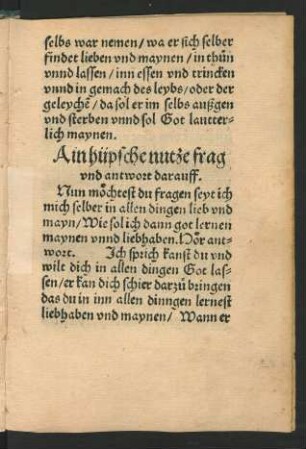 selbs war nemen/ wa er sich selber
findet lieben vnd maynen/ in thůn
vnnd lassen/ inn essen vnd trincken
vnnd in gemach des leybs/ oder der
geleychē/ da sol er im selbs außgen
vnd sterben vnnd sol Got lautter-
lich maynen.
Ain hüpsche nutze frag
vnd antwort darauff.
Nun möchtest du fragen seyt ich
mich selber in allen dingen lieb vnd
mayn/ Wie sol ich dann got lernen
maynen vnnd liebhaben. Hör ant-
wort. Ich sprich kanst du vnd
wilt dich in allen dingen Got las-
sen/ er kan dich schier darzů bringen
das du in inn allen dinngen lernest
liebhaben vnd maynen/ Wann er